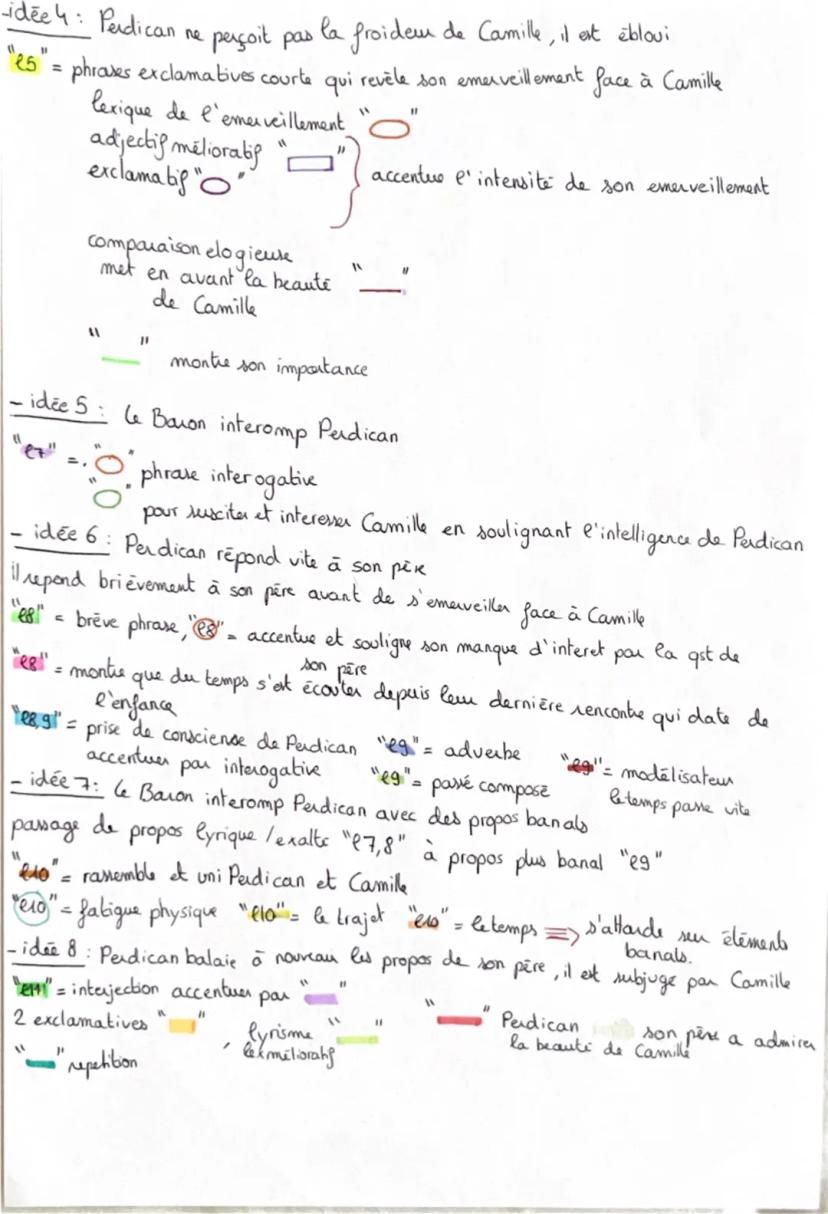 -idée 4 : Perdican ne perçoit pas la froideur de Camille, il est ébloui
"l5" = phrases exclamatives courte qui revèle son emerveillement face à Camille
lexique de l'emerveillement " "
adjectif mélioratif " "
exclamatif " "
accentue l'intensité de son emerveillement
comparaison elogieuse
met en avant la beauté " "
de Camille
" " montre son importance
- idée 5 : Le Baron interomp Perdican
"l7" = . " "
" " phrase interogative
pour susciter et interesser Camille en soulignant l'intelligence de Perdican
- idée 6 : Perdican répond vite à son père
il repond brièvement à son père avant de s'emerveiller face à Camille
"l8" = brève phrase, "l8" = accentue et souligne son manque d'interet pour la qst de
son père
"l8" = montre que du temps s'est écouter depuis leur dernière rencontre qui date de
l'enfance
"l8,9" = prise de consciense de Perdican "l9" = adverbe "l9" = modélisateur
accentuer par interogative "l9" = passé composé le temps passe vite
- idée 7 : Le Baron interomp Perdican avec des propos banals
passage de propos lyrique / exalté "l7,8" à propos plus banal "l9"
"l10" = rassemble et uni Perdican et Camille
"l10" = fatigue physique "l10" = le trajet "l10" = le temps ⇒ s'attarde sur éléments
banals.
- idée 8 : Perdican balaie à nouveau les propos de son père, il est subjugé par Camille
"l11" = interjection accentuer par " "
2 exclamatives " " , lyrisme " " " " Perdican son père a admirer
lex mélioratif la beauté de Camille
" " repetition